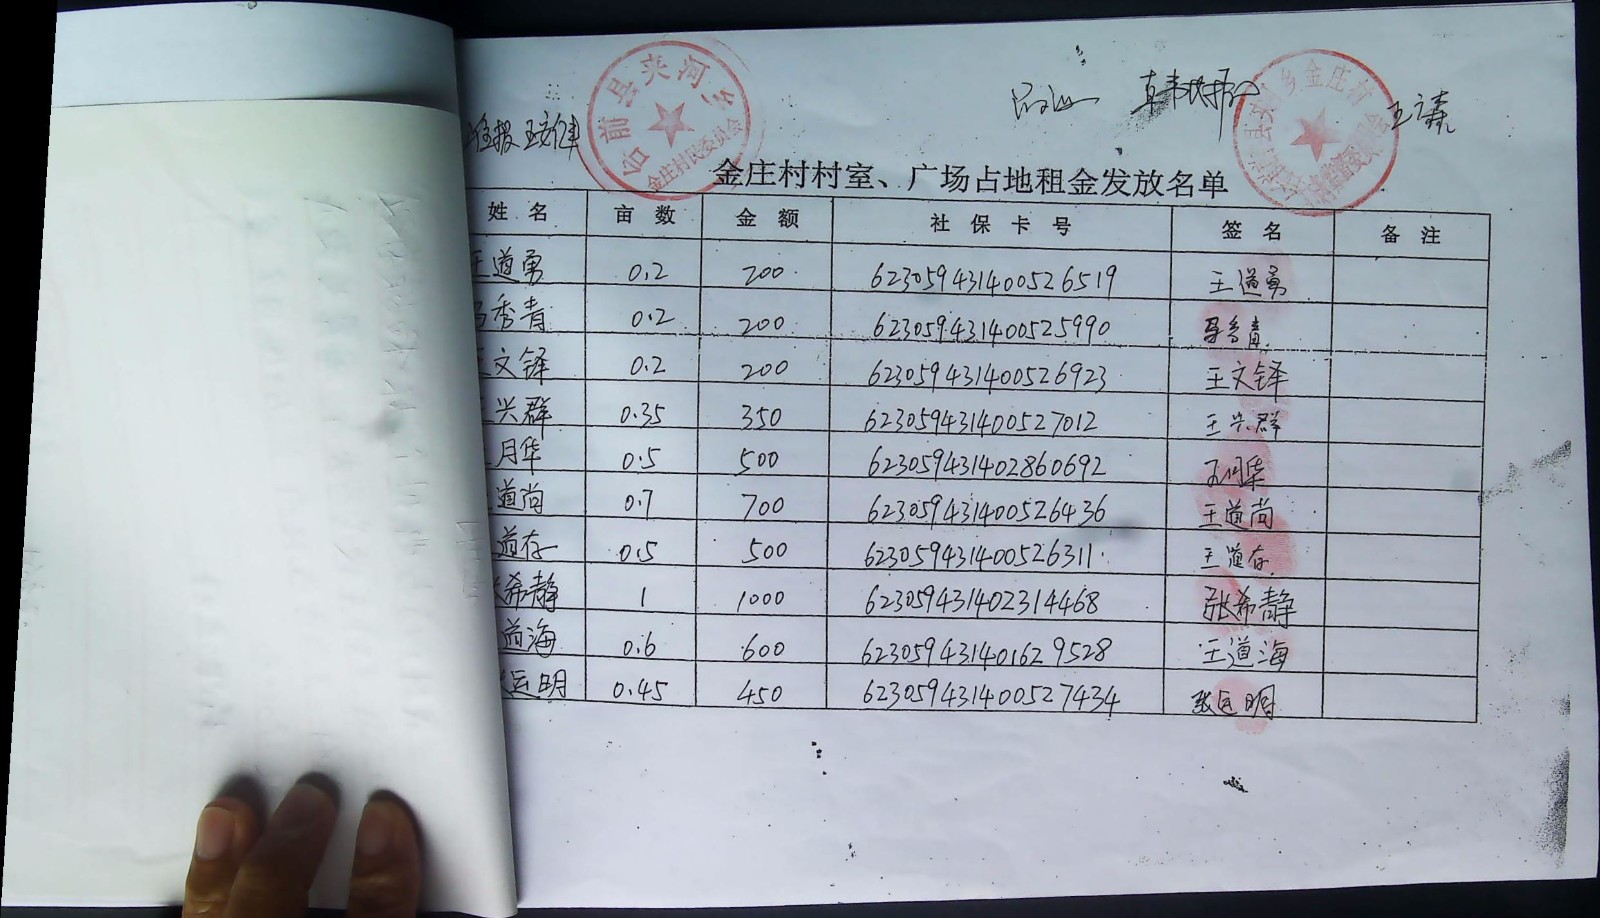 台前县夹河乡
金庄村民委员会
乡金庄村
金庄村村室、广场占地租金发放名单
姓名 亩数 金额 社保卡号 签名 备注
王道勇 0.2 200 623059431400526519 王道勇
秀青 0.2 200 623059431400525990
王文铎 0.2 200 623059431400526923 王文铎
王兴群 0.35 350 623059431400527012 王兴群
月华 0.5 500 623059431402860692
道尚 0.7 700 623059431400526436 王道尚
道存 0.5 500 623059431400526311 王道存
张希静 1 1000 623059431402314468 张希静
道海 0.6 600 623059431401629528 王道海
运明 0.45 450 623059431400527434 张运明